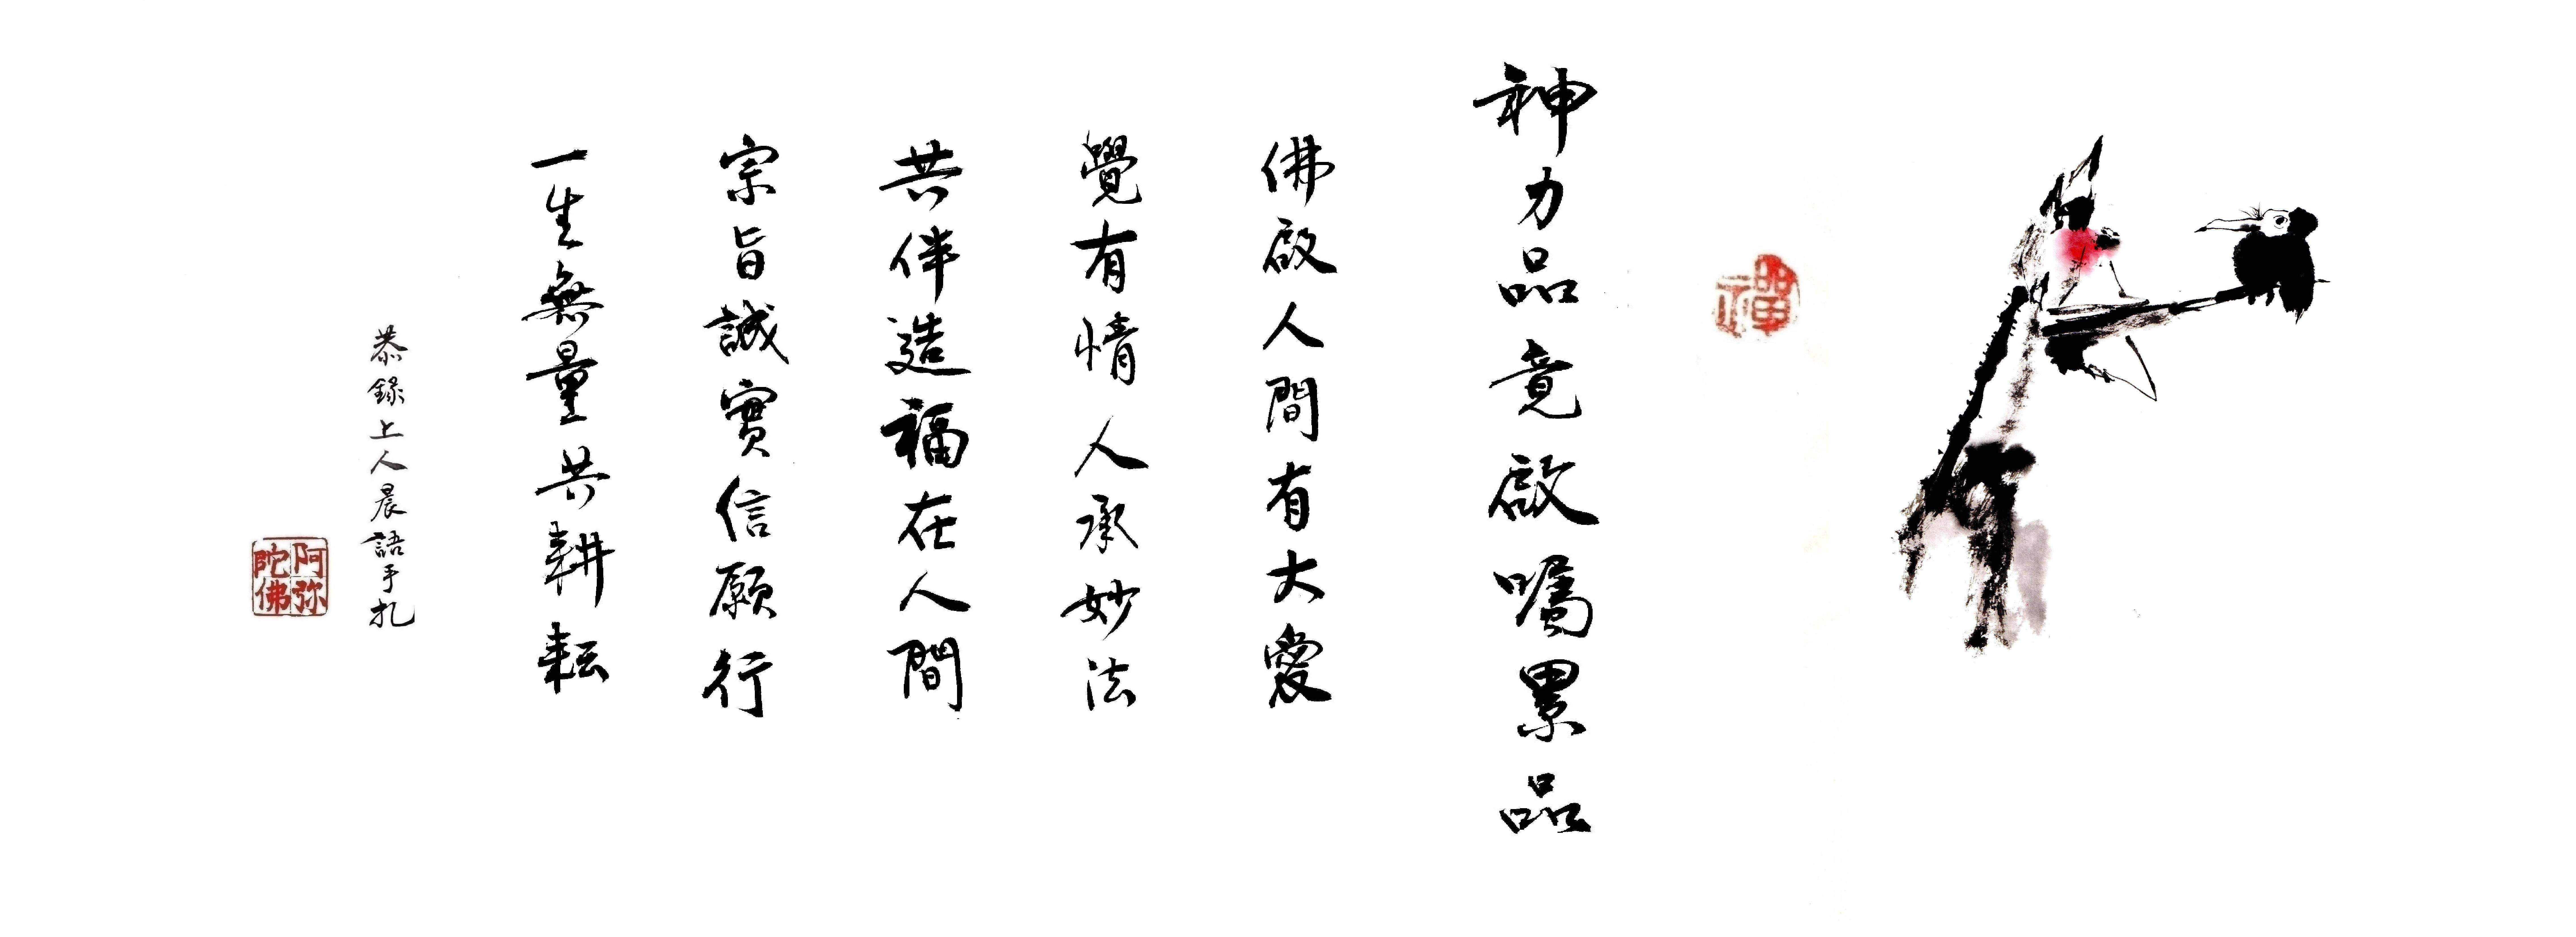 禪
神力品竟啟囑累品
佛啟人間有大愛
覺有情人承妙法
共伴造福在人間
宗旨誠實信願行
一生無量共耕耘
恭錄上人晨語手扎
阿弥陀佛